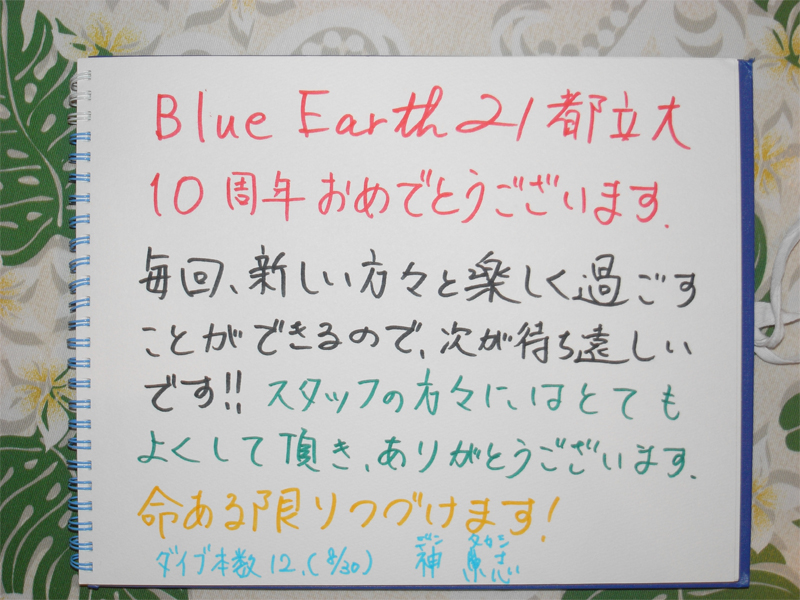 Blue Earth 21 都立大
10周年おめでとうございます.
毎回、新しい方々と楽しく過ごす
ことができるので、次が待ち遠しい
です!! スタッフの方々にはとても
よくして頂き、ありがとうございます.
命ある限りつづけます!
ダイブ本数 12. (8/30) 神